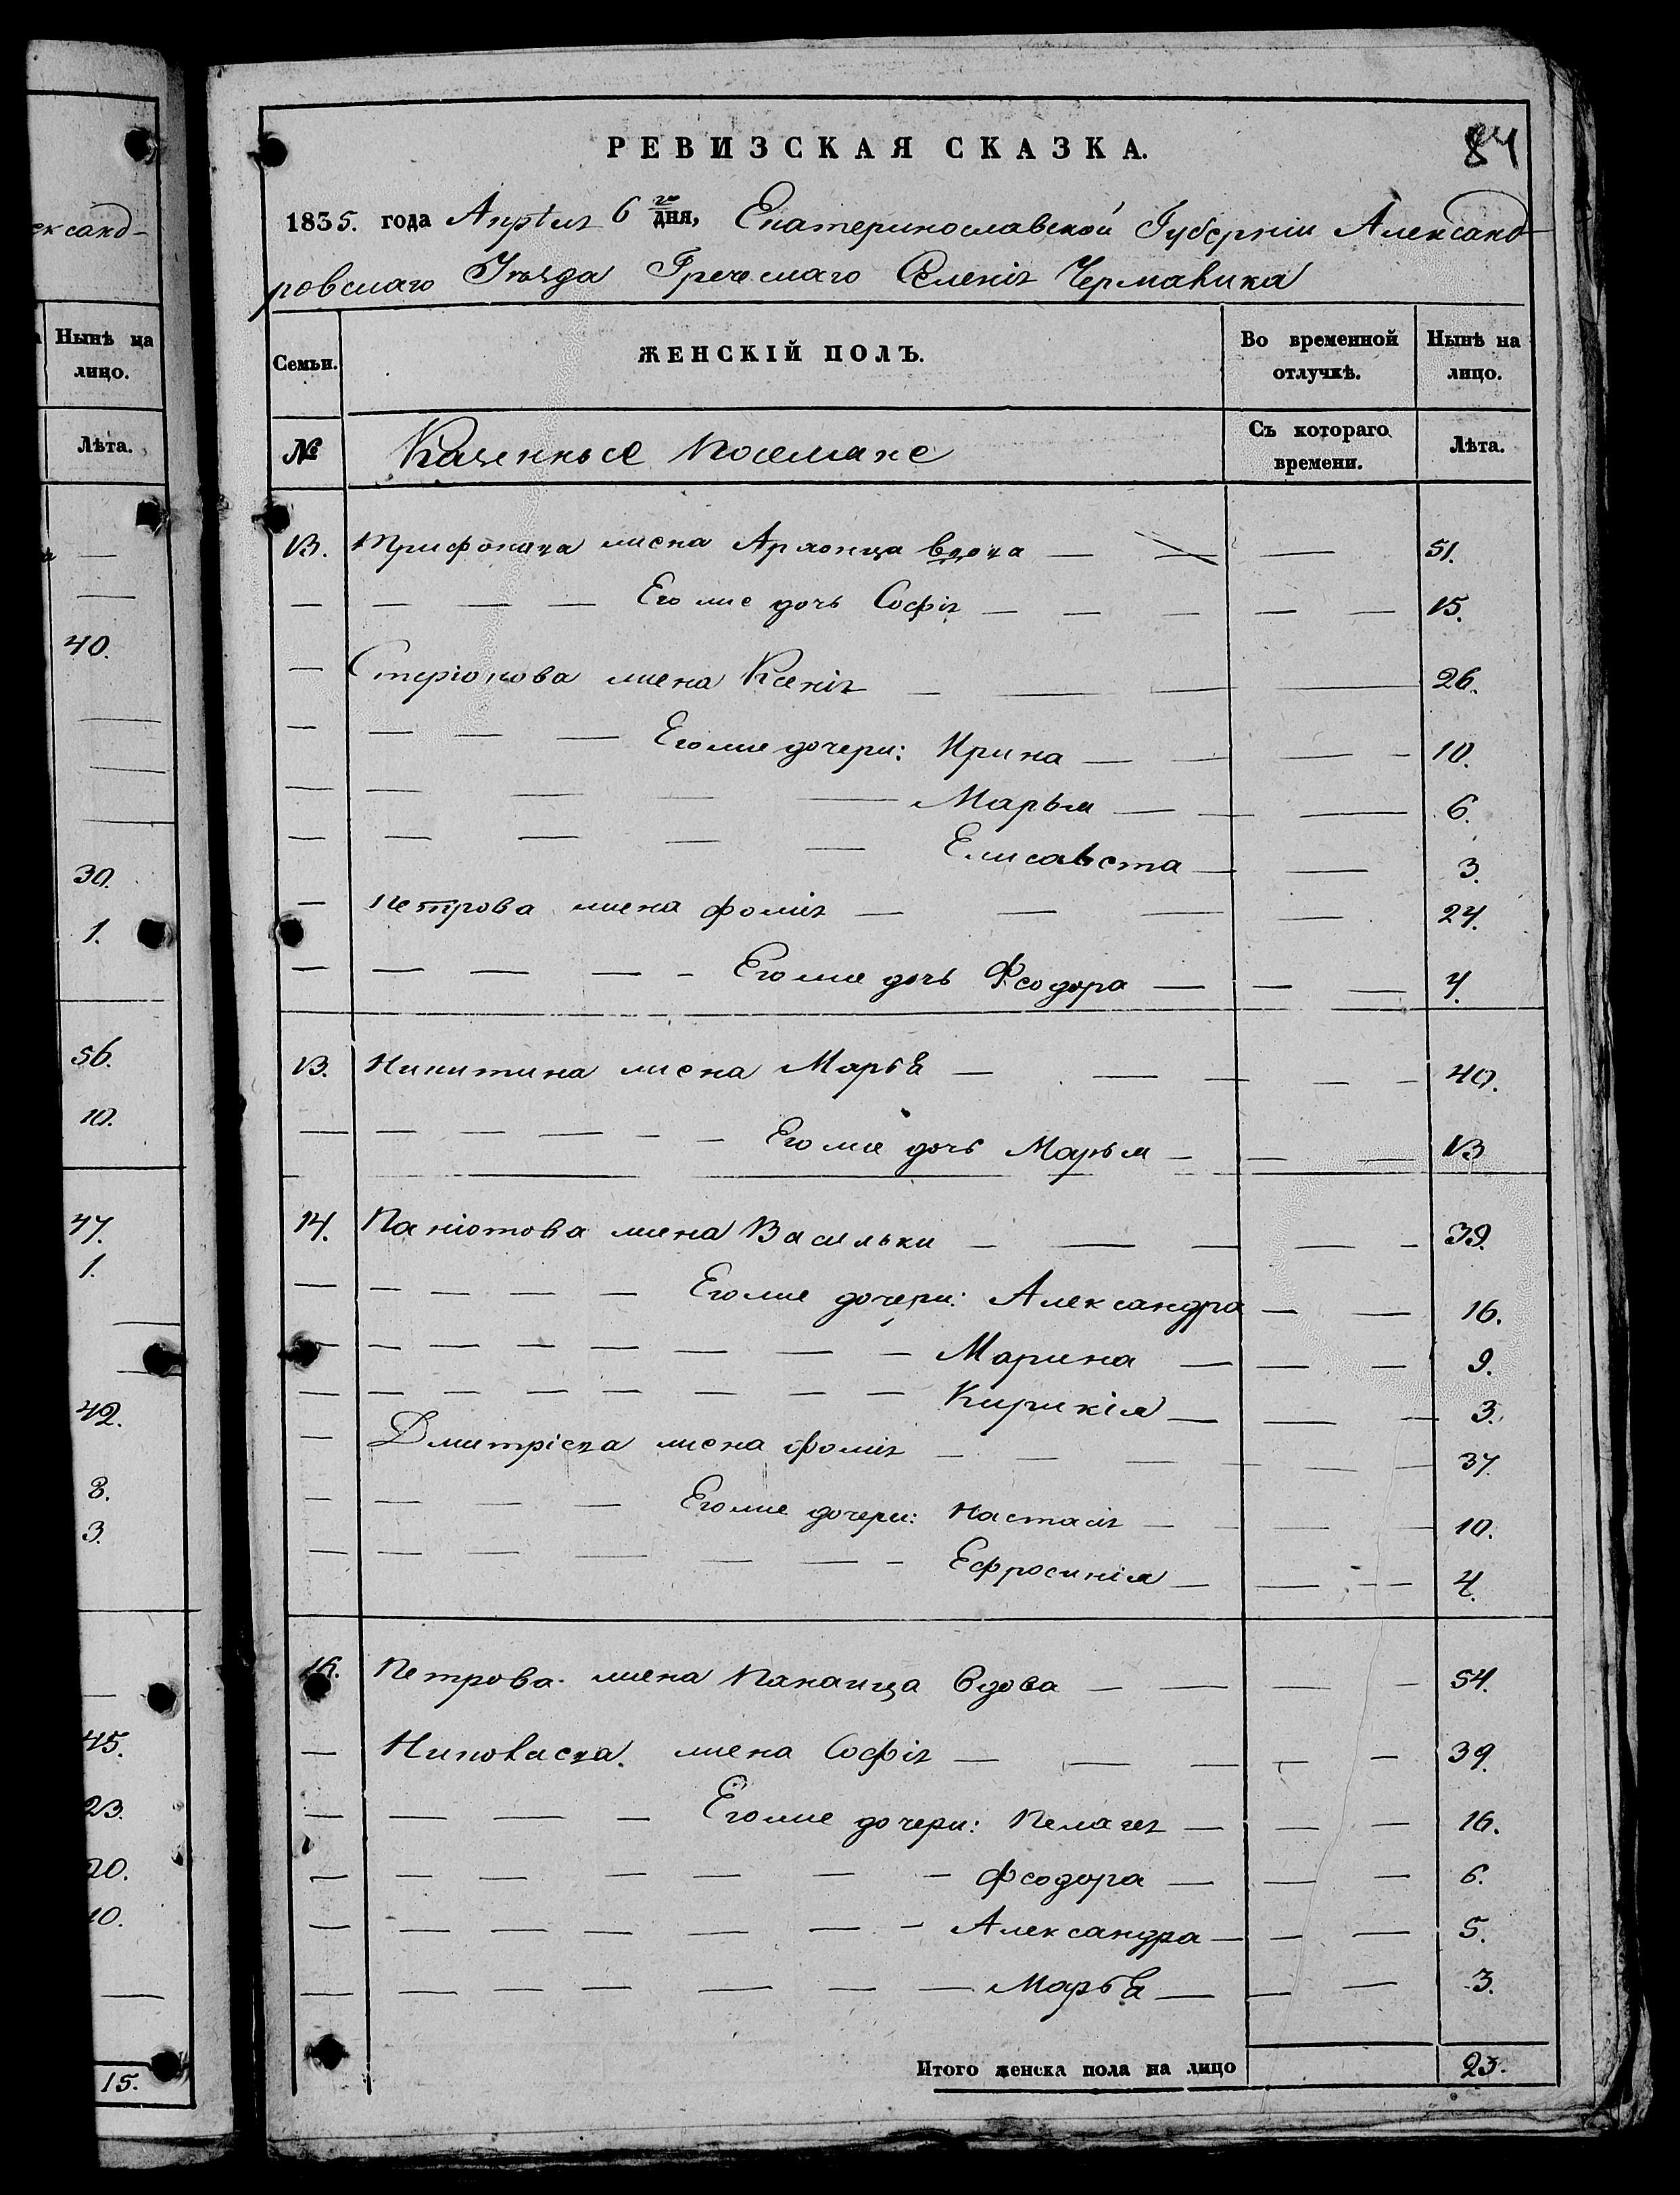 РЕВИЗСКАЯ СКАЗКА.
84
1835. года Апрѣля 6 го дня, Екатеринославской Губерніи Александ-
ровскаго Уѣзда Греческаго Селенія Чермалика
ександ-
Семьи.
ЖЕНСКІЙ ПОЛЪ.
Во временной отлучкѣ.
Нынѣ на лицо.
№
Казенные Поселяне
Съ котораго времени.
Лѣта.
Нынѣ на
лицо.
Лѣта.
40.
30.
1.
56.
10.
47.
1.
42.
8.
3.
45.
23.
20.
10.
15.
13. Трифонова жена вдова — — — 51.
— — — — Его же дочь Софія — — — — — 15.
— Стеріонова жена Ксенія — — — — 26.
— — — — Его же дочери: Ирина — — — — 10.
— — — — — Марья — — — 6.
— — — — — Елисавета — — 3.
— Петрова жена Фомія — — — — 24.
— — — — - Его же дочь Феодора — — — 4.
13. Никитина жена Марья — — — — - 40.
— — — — — - — Его же дочь Марья — — — 13
14. Паніотова жена Васильки — — — — - 39.
— — — — — Его же дочери: Александра — — 16.
— — — — — — — — — Марина — — — 9.
— — — — — — — — Кирикія — — — 3.
— Дмитріева жена Фомія — — — — — — 37.
— — — — — Его же дочери: Настасія — — — — 10.
— — — — — — — - Ефросинія — — — — 4.
Петрова жена Вдова — — — - 54.
— жена Софія — — — — — 39.
— — — — Его же дочери: Пелагея — — — 16.
— — — — — — — — Феодора — — — 6.
— — — — — — — - Александра — — — 5.
— — — — — — — — Марья — — — 3.
Итого женска пола на лицо 23.